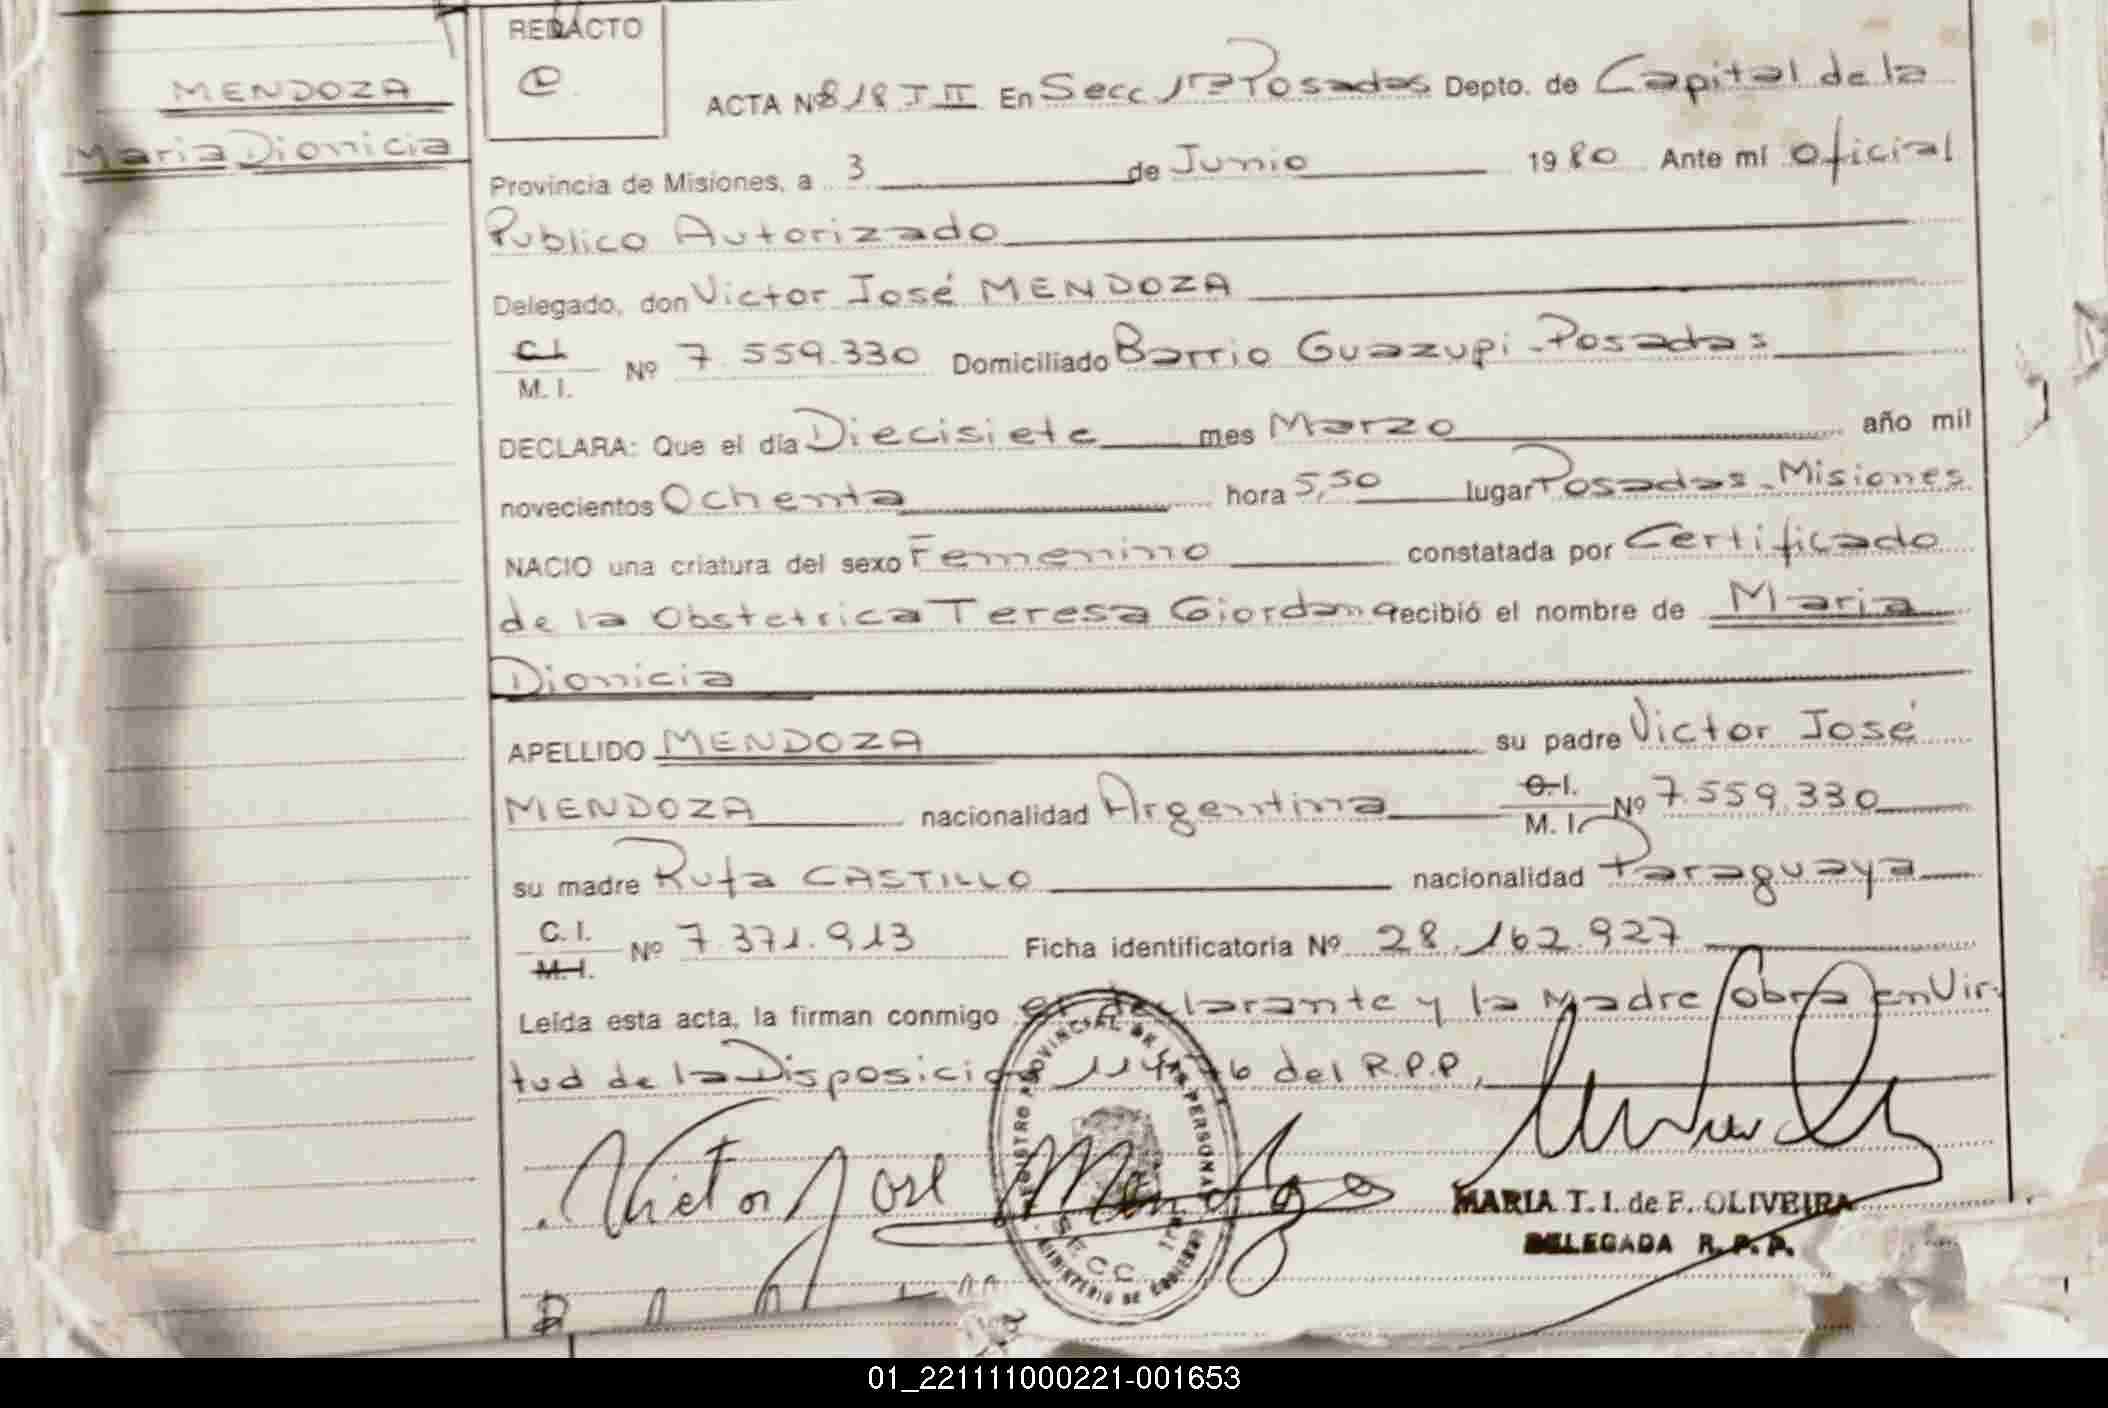 MENDOZA
Maria Dionicia
REDACTO
ACTA Nº 818 T II En Secc 1ra Posadas Depto. de Capital de la
Provincia de Misiones, a 3 de Junio 1980 Ante mí Oficial
Publico Autorizado
Delegado, don Victor José MENDOZA
C.I.
M. I. Nº 7.559.330 Domiciliado Barrio Guazupi - Posadas
DECLARA: Que el día Diecisiete mes Marzo año mil
novecientos Ochenta hora 5,50 lugar Posadas - Misiones
NACIO una criatura del sexo Femenino constatada por Certificado
de la Obstetrica Teresa Giordano recibió el nombre de Maria
Dionicia
APELLIDO MENDOZA su padre Victor José
MENDOZA nacionalidad Argentina C.I. M. I. Nº 7.559.330
su madre Rufa CASTILLO nacionalidad Paraguaya
C. I.
M. I. Nº 7.371.913 Ficha identificatoria Nº 28.162.927
Leída esta acta, la firman conmigo el declarante y la Madre obra en Vir-
tud de la Disposición 114/76 del R.P.P.
Victor José Mendoza
REGISTRO PROVINCIAL DE LAS PERSONAS
SECC 1ra
MINISTERIO DE GOBIERNO
MARIA T. I. de F. OLIVEIRA
DELEGADA R. P. P.
01_221111000221-001653